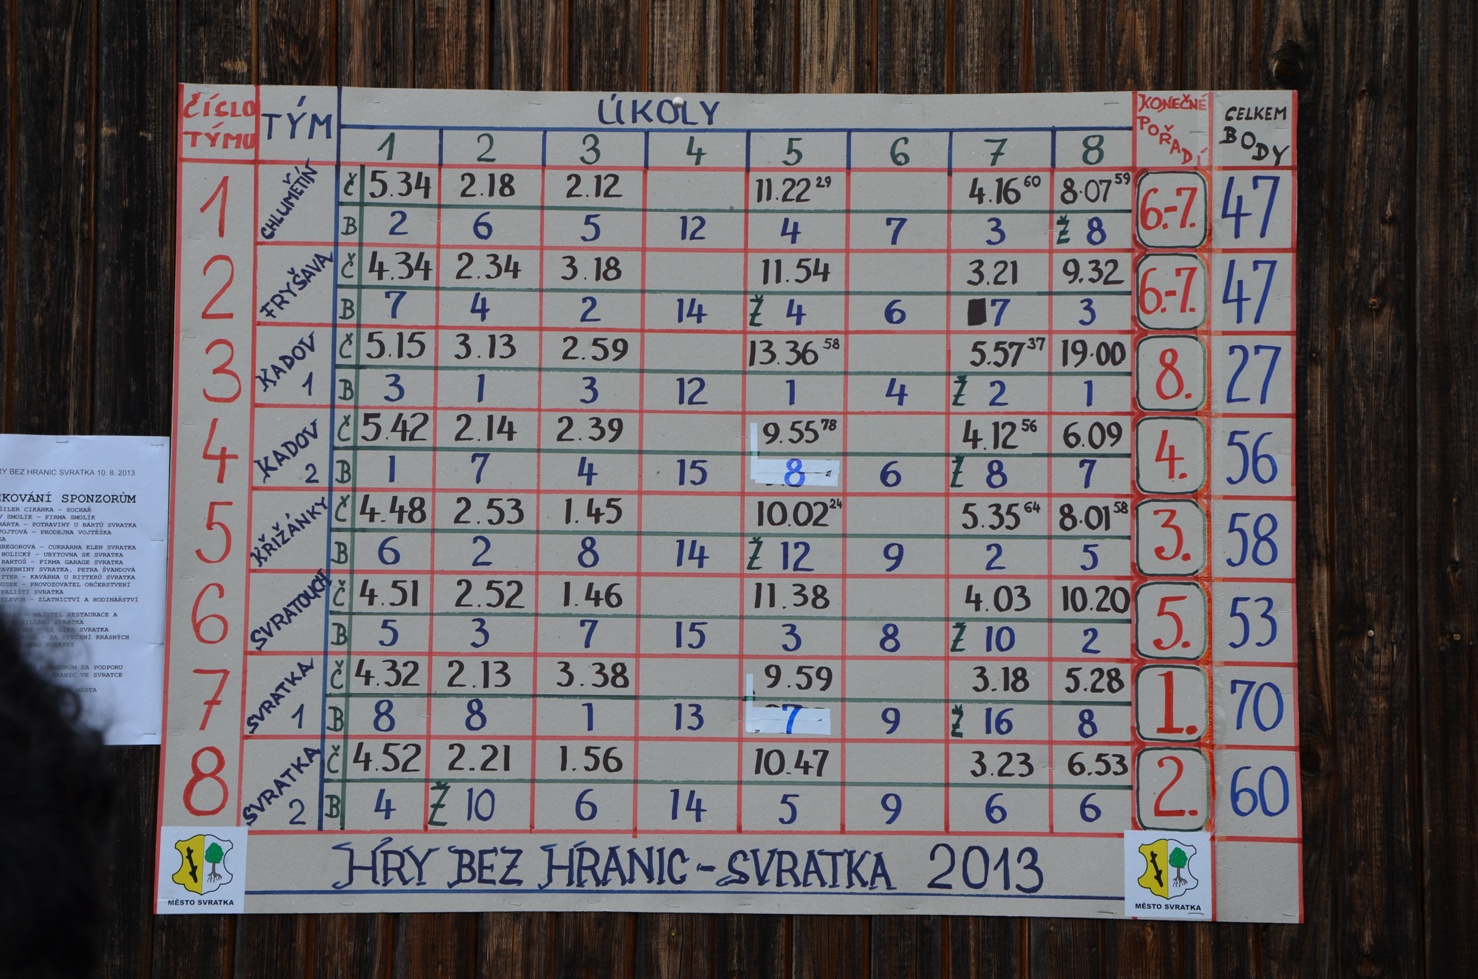 ČÍSLO TÝMU TÝM ÚKOLY KONEČNÉ POŘADÍ CELKEM BODY
1 2 3 4 5 6 7 8
1 CHLUMĚTÍN Č 5.34 2.18 2.12 11.22 29 4.16 60 8.07 59 6.-7. 47
B 2 6 5 12 4 7 3 Ž 8
2 FRYŠAVA Č 4.34 2.34 3.18 11.54 3.21 9.32 6.-7. 47
B 7 4 2 14 Ž 4 6 7 3
3 KADOV 1 Č 5.15 3.13 2.59 13.36 58 5.57 37 19.00 8. 27
B 3 1 3 12 1 4 Ž 2 1
4 KADOV 2 Č 5.42 2.14 2.39 9.55 78 4.12 56 6.09 4. 56
B 1 7 4 15 8 6 Ž 8 7
5 KŘIŽÁNKY Č 4.48 2.53 1.45 10.02 24 5.35 64 8.01 58 3. 58
B 6 2 8 14 Ž 12 9 2 5
6 SVRATOUCH Č 4.51 2.52 1.46 11.38 4.03 10.20 5. 53
B 5 3 7 15 3 8 Ž 10 2
7 SVRATKA 1 Č 4.32 2.13 3.38 9.59 3.18 5.28 1. 70
B 8 8 1 13 7 9 Ž 16 8
8 SVRATKA 2 Č 4.52 2.21 1.56 10.47 3.23 6.53 2. 60
B 4 Ž 10 6 14 5 9 6 6
HRY BEZ HRANIC - SVRATKA 2013
MĚSTO SVRATKA
MĚSTO SVRATKA
RY BEZ HRANIC SVRATKA 10. 8. 2013
KOVÁNÍ SPONZORŮM
CIKÁNKA - SOCHAŘ
SMOLÍK - FIRMA SMOLÍK
BÁRTA - POTRAVINY U BÁRTŮ SVRATKA
VOJTOVÁ - PRODEJNA VOJTĚŠKA
GREGOROVÁ - CUKRÁRNA ELEN SVRATKA
HOLICKÝ - UBYTOVNA SK SVRATKA
BARTOŠ - FIRMA GARAGE SVRATKA
SVRATKA, PETRA ŠVANDOVÁ
KAVÁRNA U RITTERŮ SVRATKA
PROVOZOVATEL OBČERSTVENÍ
SVRATKA
ZLATNICTVÍ A HODINÁŘSTVÍ
RESTAURACE A
SVRATKA
SVRATKA
KRÁSNÝCH
ZA PODPORU
HRANIC VE SVRATCE
MĚSTA